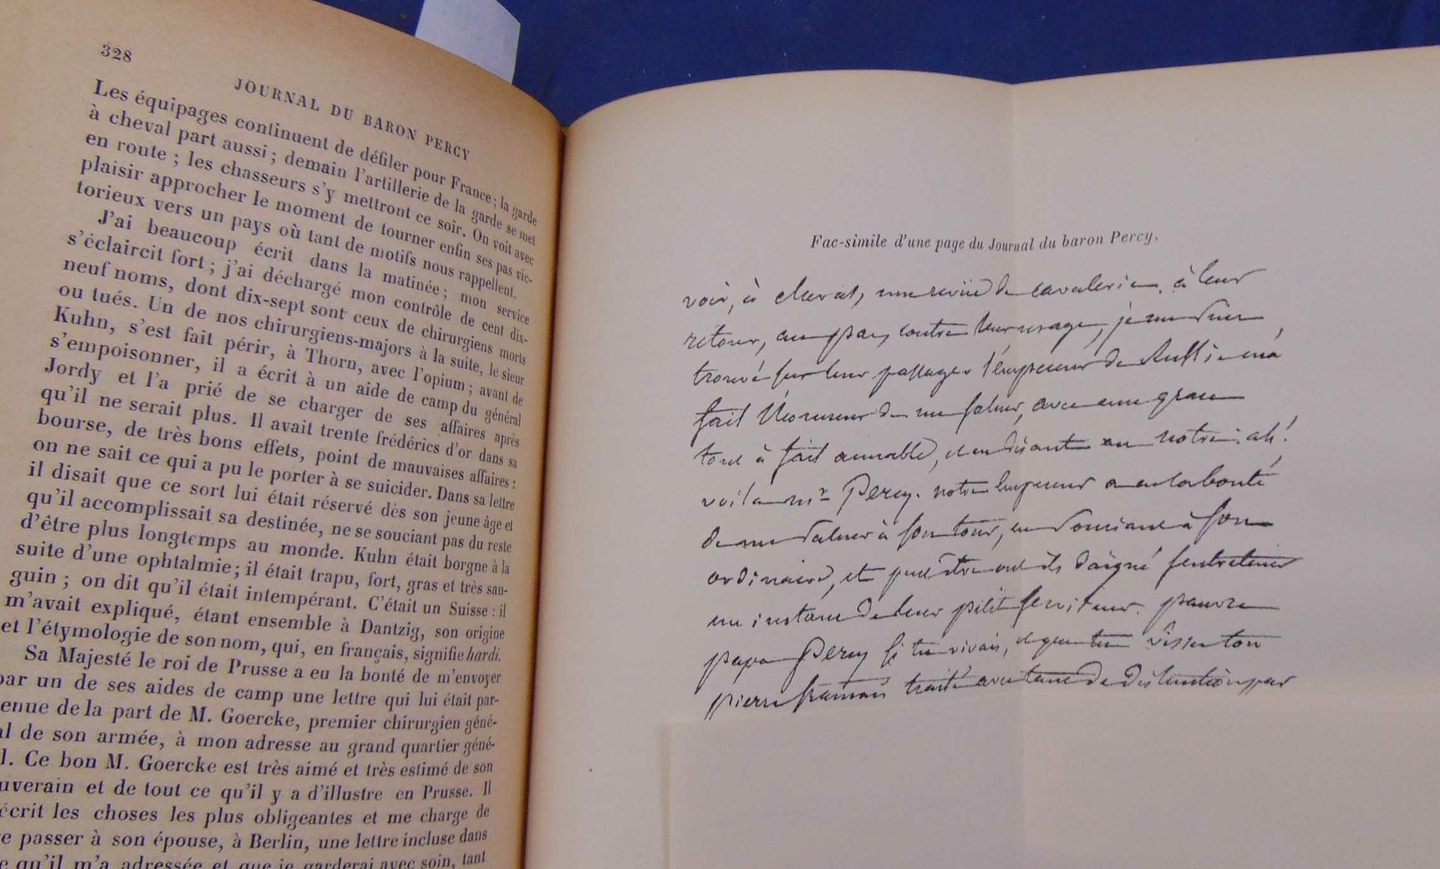 328
JOURNAL DU BARON PERCY
Les équipages continuent de défiler pour France ; la garde
à cheval part aussi ; demain l'artillerie de la garde se met
en route ; les chasseurs s'y mettront ce soir. On voit avec
plaisir approcher le moment de tourner enfin ses pas vic-
torieux vers un pays où tant de motifs nous rappellent.
J'ai beaucoup écrit dans la matinée ; mon service
s'éclaircit fort ; j'ai déchargé mon contrôle de cent dix-
neuf noms, dont dix-sept sont ceux de chirurgiens morts
ou tués. Un de nos chirurgiens-majors à la suite, le sieur
Kuhn, s'est fait périr, à Thorn, avec l'opium ; avant de
s'empoisonner, il a écrit à un aide de camp du général
Jordy et l'a prié de se charger de ses affaires après
qu'il ne serait plus. Il avait trente frédérics d'or dans sa
bourse, de très bons effets, point de mauvaises affaires :
on ne sait ce qui a pu le porter à se suicider. Dans sa lettre
il disait que ce sort lui était réservé dès son jeune âge et
qu'il accomplissait sa destinée, ne se souciant pas du reste
d'être plus longtemps au monde. Kuhn était borgne à la
suite d'une ophtalmie ; il était trapu, fort, gras et très san-
guin ; on dit qu'il était intempérant. C'était un Suisse : il
m'avait expliqué, étant ensemble à Dantzig, son origine
et l'étymologie de son nom, qui, en français, signifie hardi.
Sa Majesté le roi de Prusse a eu la bonté de m'envoyer
par un de ses aides de camp une lettre qui lui était par-
enue de la part de M. Goercke, premier chirurgien géné-
al de son armée, à mon adresse au grand quartier géné-
l. Ce bon M. Goercke est très aimé et très estimé de son
uverain et de tout ce qu'il y a d'illustre en Prusse. Il
écrit les choses les plus obligeantes et me charge de
e passer à son épouse, à Berlin, une lettre incluse dans
e qu'il m'a adressée et que je garderai avec soin, tant
Fac-simile d'une page du Journal du baron Percy.
voir, à cheval, une revüe de cavalerie. à leur
retour, au pas, contre leur usage, je me suis
trouvé sur leur passage. l'empereur de Russie m'a
fait l'honneur de me saluer, avec une grace
tout à fait aimable, et en disant au notre: ah!
voila mr Percy. notre Empereur a eu la bonté
de me saluer à son tour, en souriant à son
ordinaire, et peut être ont ils daigné s'entretenir
un instant de leur petit serviteur. pauvre
papa Percy si tu vivais, et que tu visse ton
pierre françois traité avec tant de distinction par